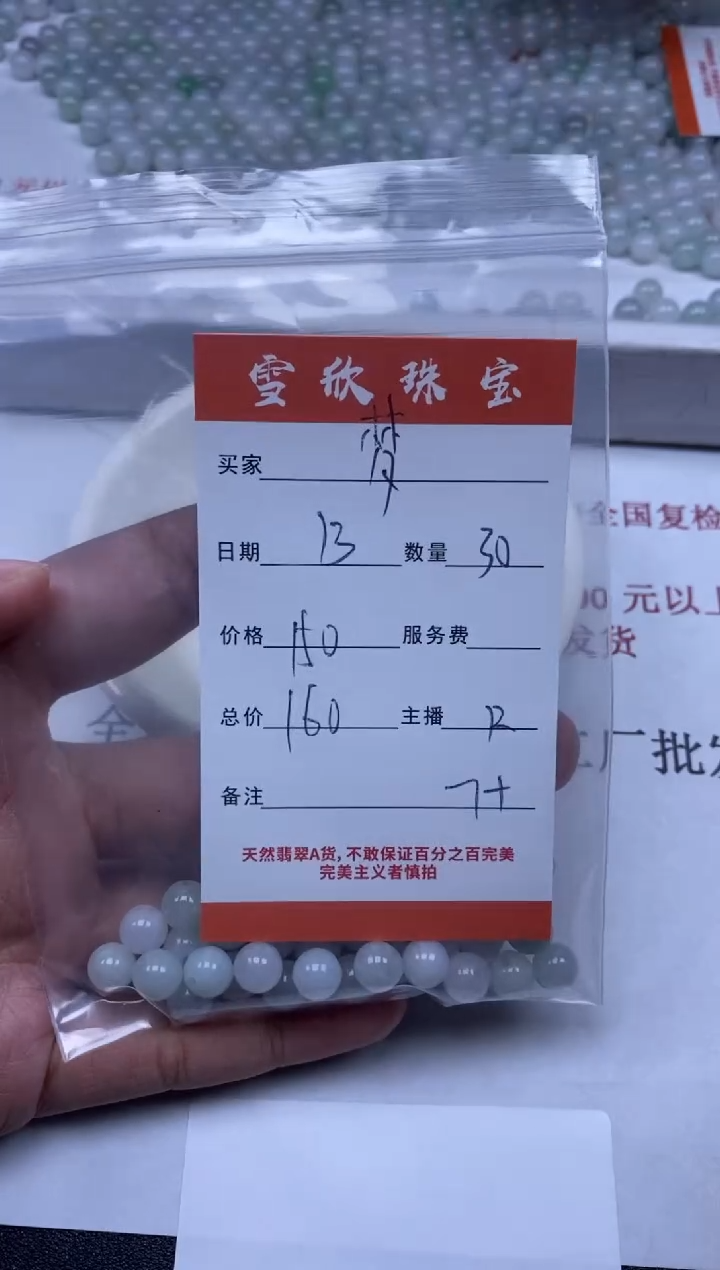 雪欣珠宝
买家 梦
日期 13 数量 30
价格 150 服务费
总价 160 主播 12
备注 7+
天然翡翠A货,不敢保证百分之百完美
完美主义者慎拍
全国复检
00 元以上
发货
全
工厂批发